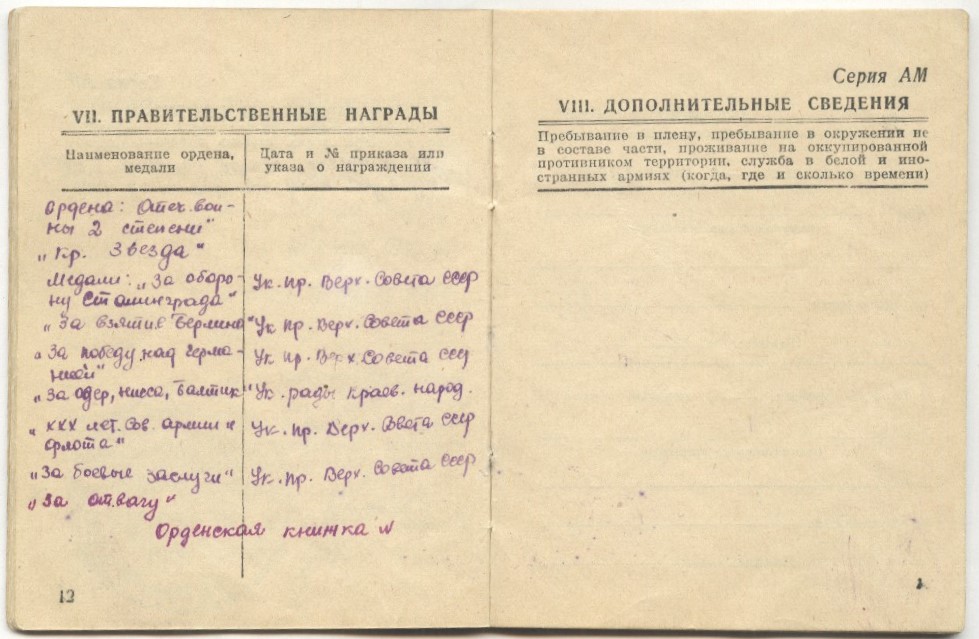 VII. ПРАВИТЕЛЬСТВЕННЫЕ НАГРАДЫ
Наименование ордена, медали
Дата и № приказа или указа о награждении
Ордена: Отеч. вой-
ны 2 степени"
„Кр. Звезда"
Медали: „За оборо- Ук. Пр. Верх. Совета СССР
ну Сталинграда"
„За взятие Берлина" Ук. Пр. Верх. Совета СССР
„За победу над Герма- Ук. Пр. Верх. Совета СССР
нией"
„За Одер, Нисса, Балтик" Ук. рады краев. народ.
„XXX лет. Сов. армии и Ук. Пр. Верх. Совета СССР
флота"
„За боевые заслуги" Ук. Пр. Верх. Совета СССР
„За отвагу"
Орденская книжка №
12
Серия АМ
VIII. ДОПОЛНИТЕЛЬНЫЕ СВЕДЕНИЯ
Пребывание в плену, пребывание в окружении не
в составе части, проживание на оккупированной
противником территории, служба в белой и ино-
странных армиях (когда, где и сколько времени)